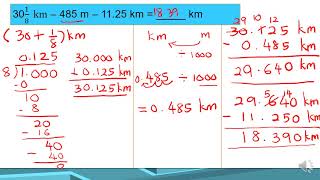 30 1/8 km – 485 m – 11.25 km = 18.39 km
(30 + 1/8) km
0.125
8 ) 1.000
- 0
10
- 8
20
- 16
40
- 40
0
30.000 km
+ 0.125 km
30.125 km
km ← m
÷ 1000
0.485 ÷ 1000
= 0.485 km
29 10 12
30.125 km
- 0.485 km
29.640 km
5 14
29.640 km
- 11.250 km
18.390 km